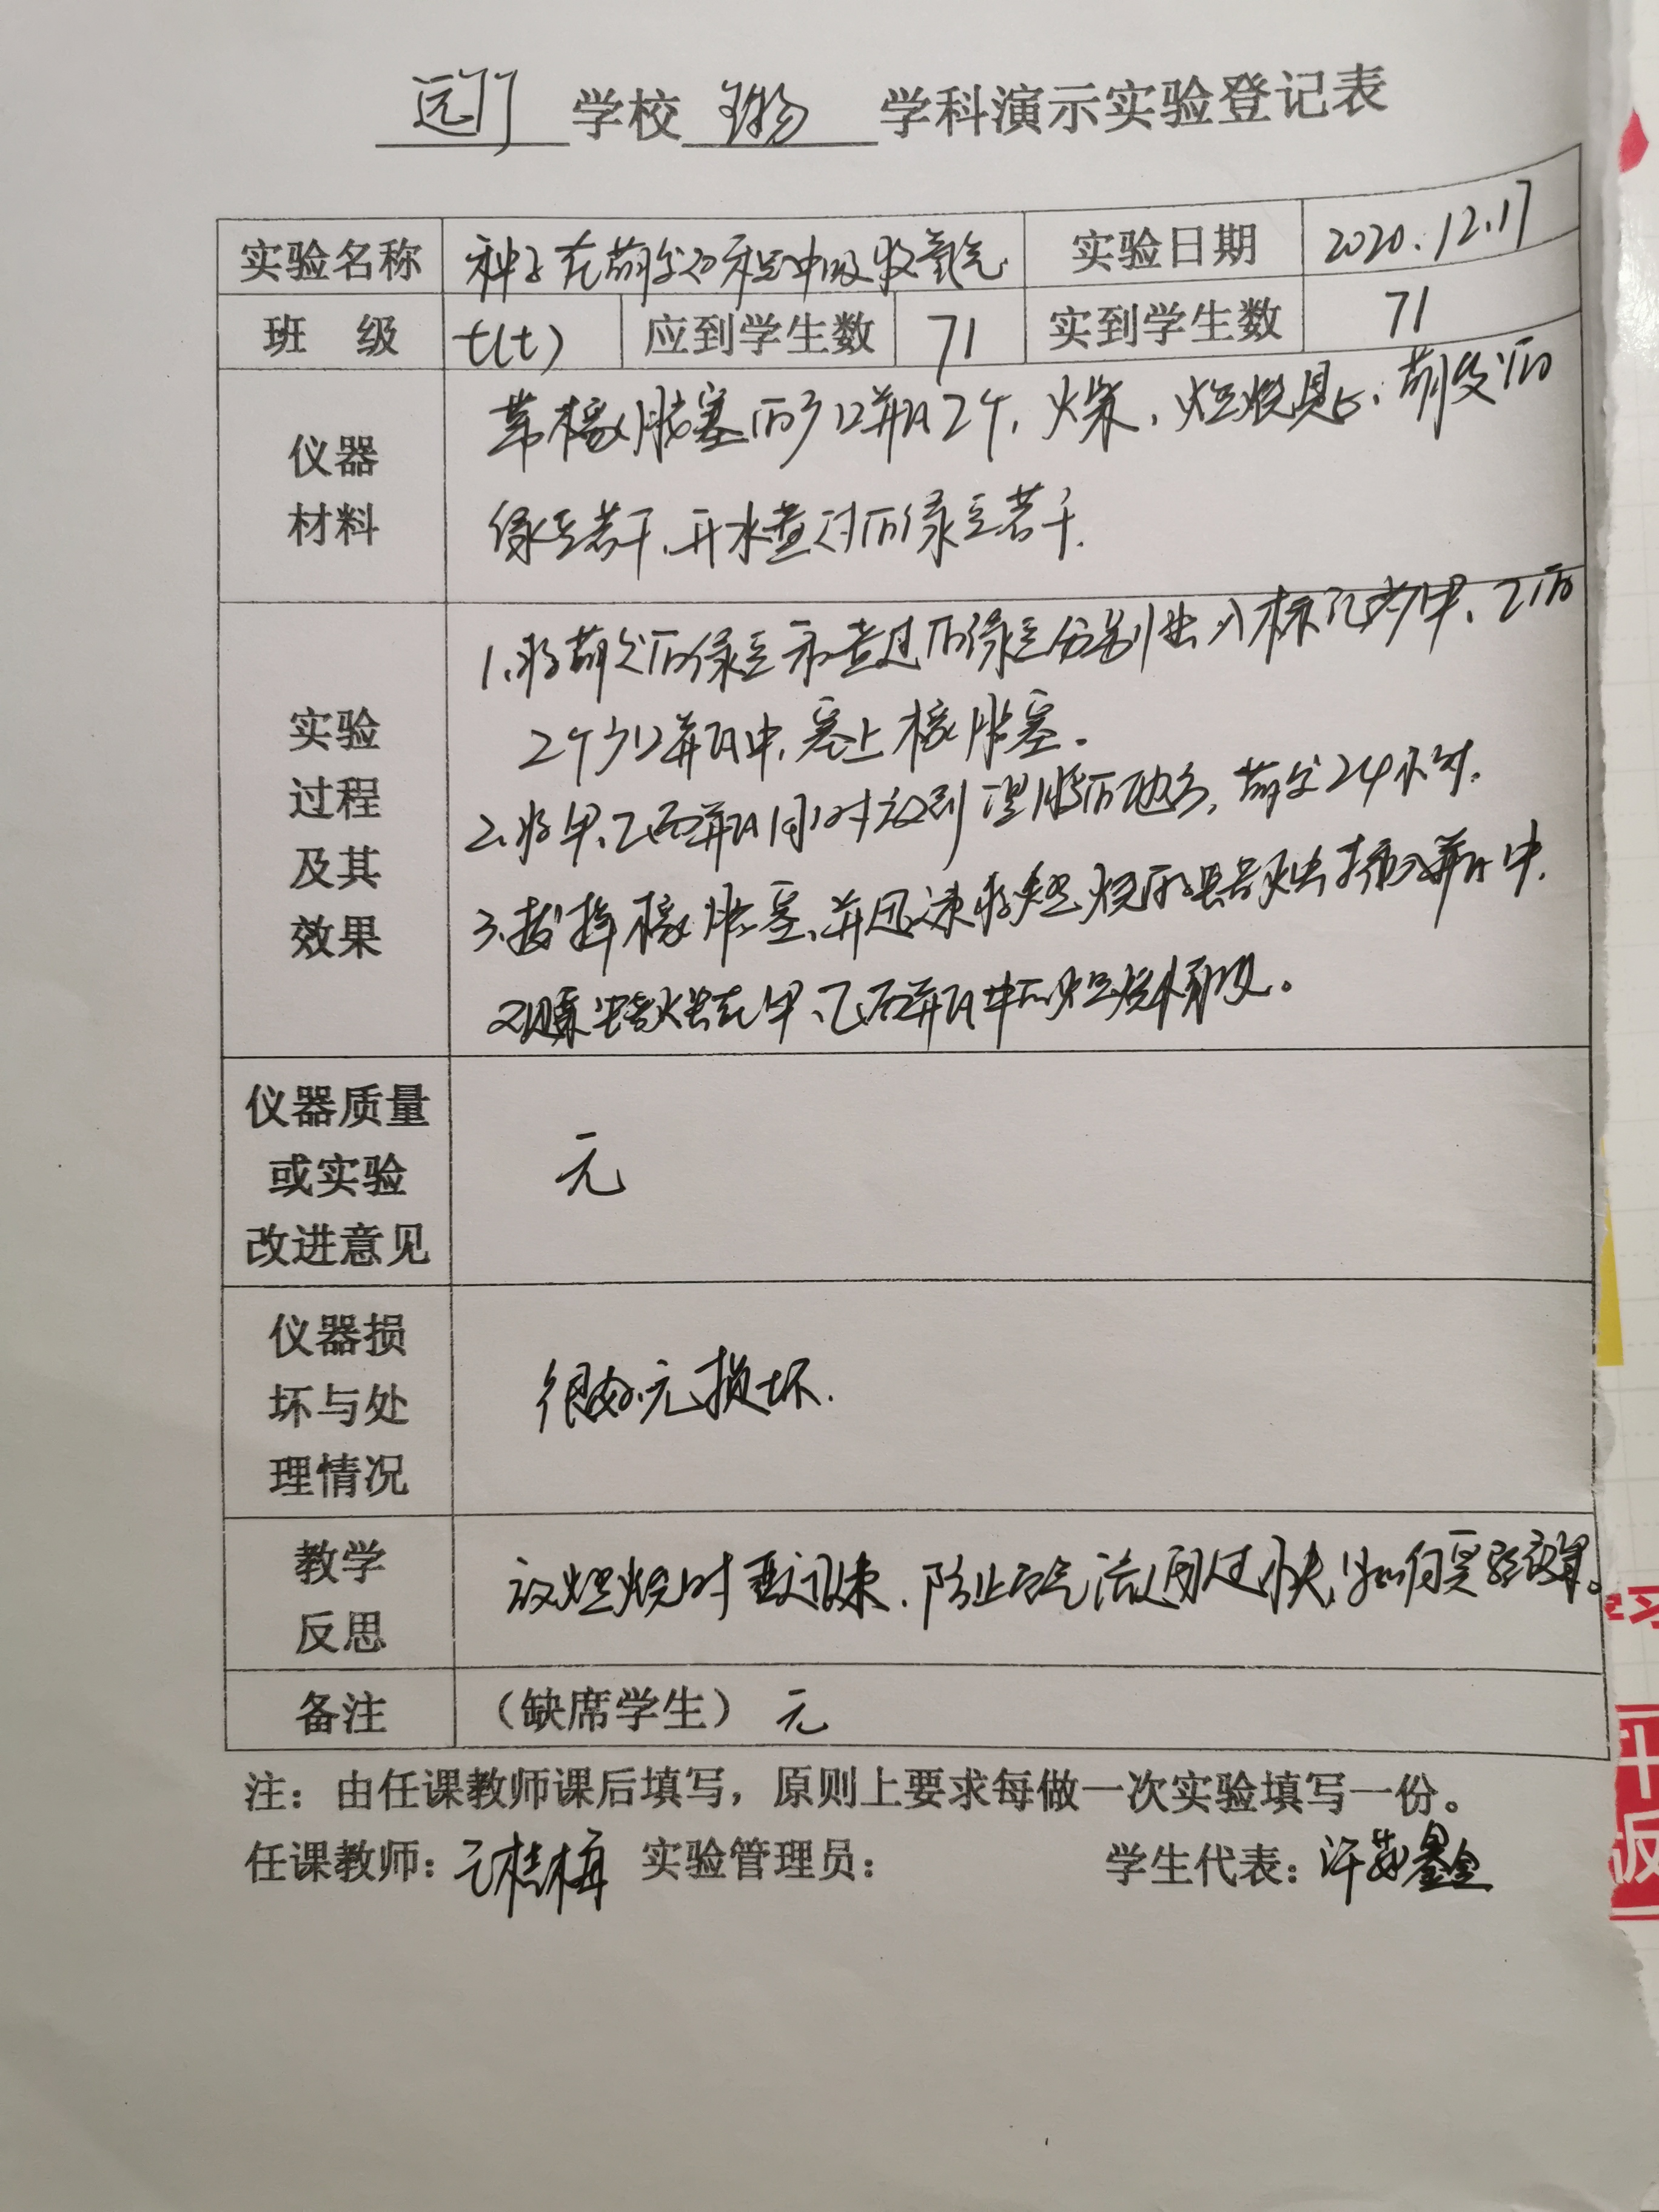 学校 生物 学科演示实验登记表
实验名称 种子在萌发过程中吸收氧气 实验日期 2020.12.17
班 级 七(七) 应到学生数 71 实到学生数 71
仪器
材料
带橡胶塞的广口瓶2个、火柴、燃烧匙、萌发的
绿豆若干、开水煮过的绿豆若干.
实验
过程
及其
效果
1、将萌发的绿豆和煮过的绿豆分别装入标记为甲、乙的
2个广口瓶中,塞上橡胶塞。
2、将甲、乙两瓶同时放到温暖的地方,萌发24小时.
3、拔掉橡胶塞、并迅速将燃烧的蜡烛插入瓶中.
观察蜡烛在甲、乙两瓶中的燃烧情况。
仪器质量
或实验
改进意见
无
仪器损
坏与处
理情况
很好.无损坏.
教学
反思
放燃烧时要迅速.防止空气流通过快,影响实验效果。
备注 (缺席学生) 无
注:由任课教师课后填写,原则上要求每做一次实验填写一份。
任课教师: 桂梅 实验管理员: 学生代表: 许
学习